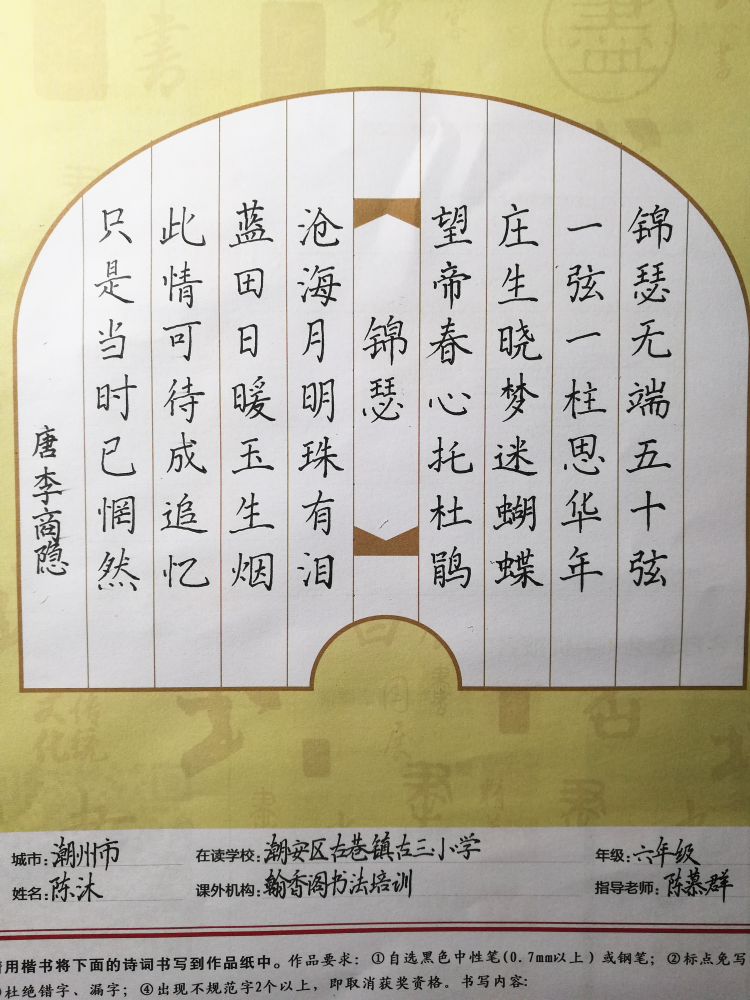 锦瑟无端五十弦
一弦一柱思华年
庄生晓梦迷蝴蝶
望帝春心托杜鹃
锦瑟
沧海月明珠有泪
蓝田日暖玉生烟
此情可待成追忆
只是当时已惘然
唐李商隐
城市:潮州市 在读学校:潮安区古巷镇古三小学 年级:六年级
姓名:陈沐 课外机构:翰香阁书法培训 指导老师:陈慕群
用楷书将下面的诗词书写到作品纸中。作品要求:①自选黑色中性笔(0.7mm以上)或钢笔;②标点免写
杜绝错字、漏字;④出现不规范字2个以上,即取消获奖资格。书写内容: